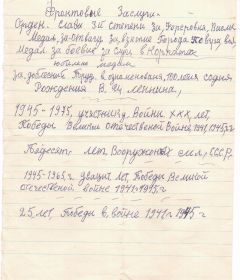 Фронтовые Заслуги.
Орден Славы 3й степени за,
Медаль, за отвагу За взятие Города
Медаль за боевые за слуги
за, доблестный Труд, в ознаменования, 100 летия со дня
Рождения В. И. Ленина,
1945-1975, участнику, Войны ХХХ лет,
Победы Велико отечественой Войне, 1941,1945гг
лет Вооруженых сил, СССР,
1945-1965,г. увацит лет, Победы Великой
отечественой войне 1941-1945 г.
25 лет, Победы в, войне 1941г 1945 г